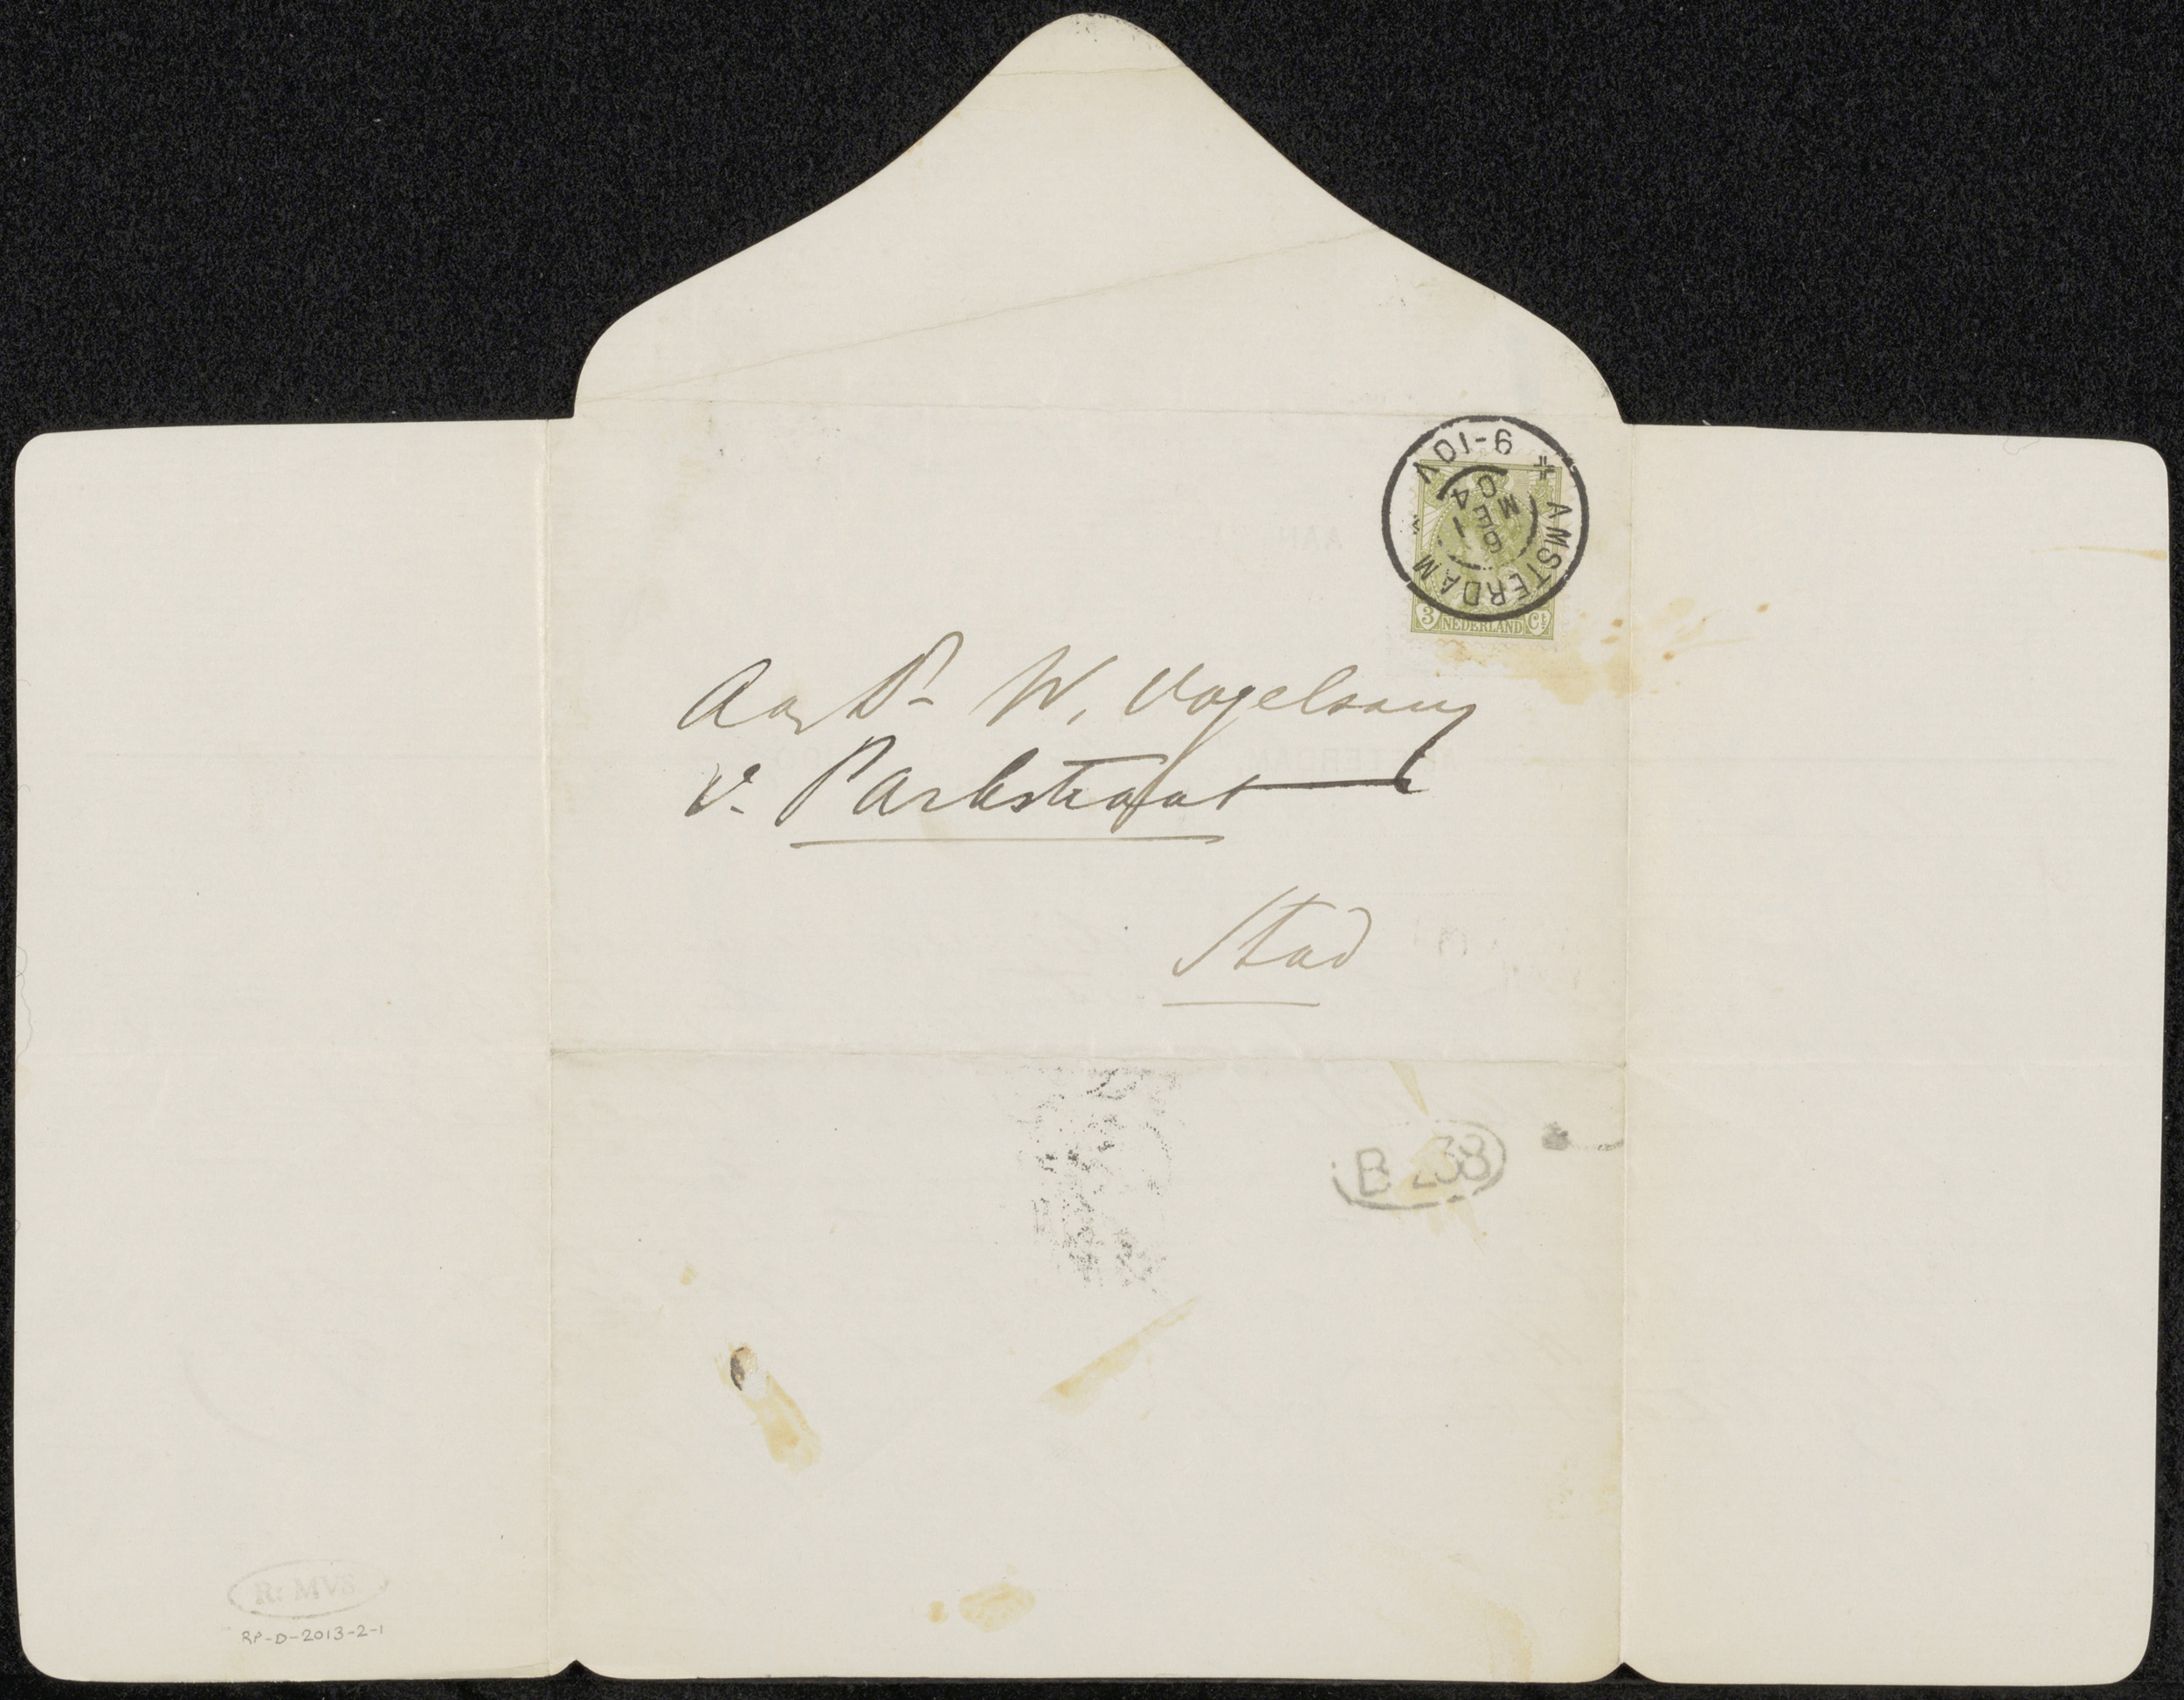 AMSTERDAM
9-10V
6 ME
04
3 NEDERLAND Ct
Aan Dr W. Vogelsang
v. Parkstraat
Stad
B 238
R: MVS
RP-D-2013-2-1